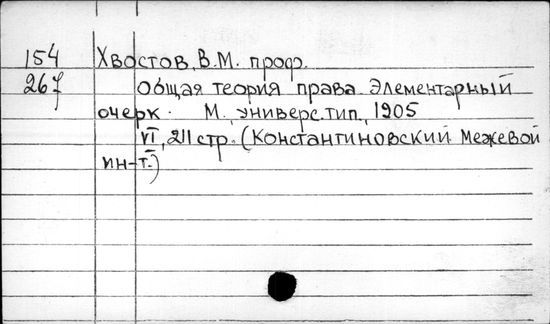 154 Хвостов, В.М. проф.
267 Общая теория права. Элементарный
очерк. М., универс.тип., 1905
VI, 211 стр. (Константиновский Межевой
ин-т.)